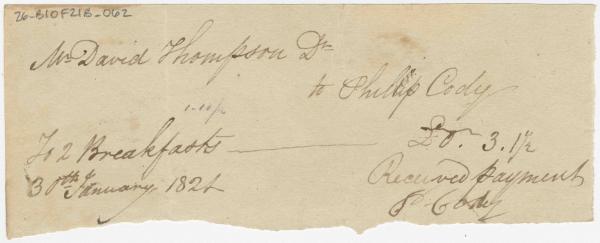 26-B10F21B-062
Mr David Thompson Dr
to Phillip Cody
To 2 Breakfasts — £0. 3. 1½
30th January 1821
Received payment
P. Cody